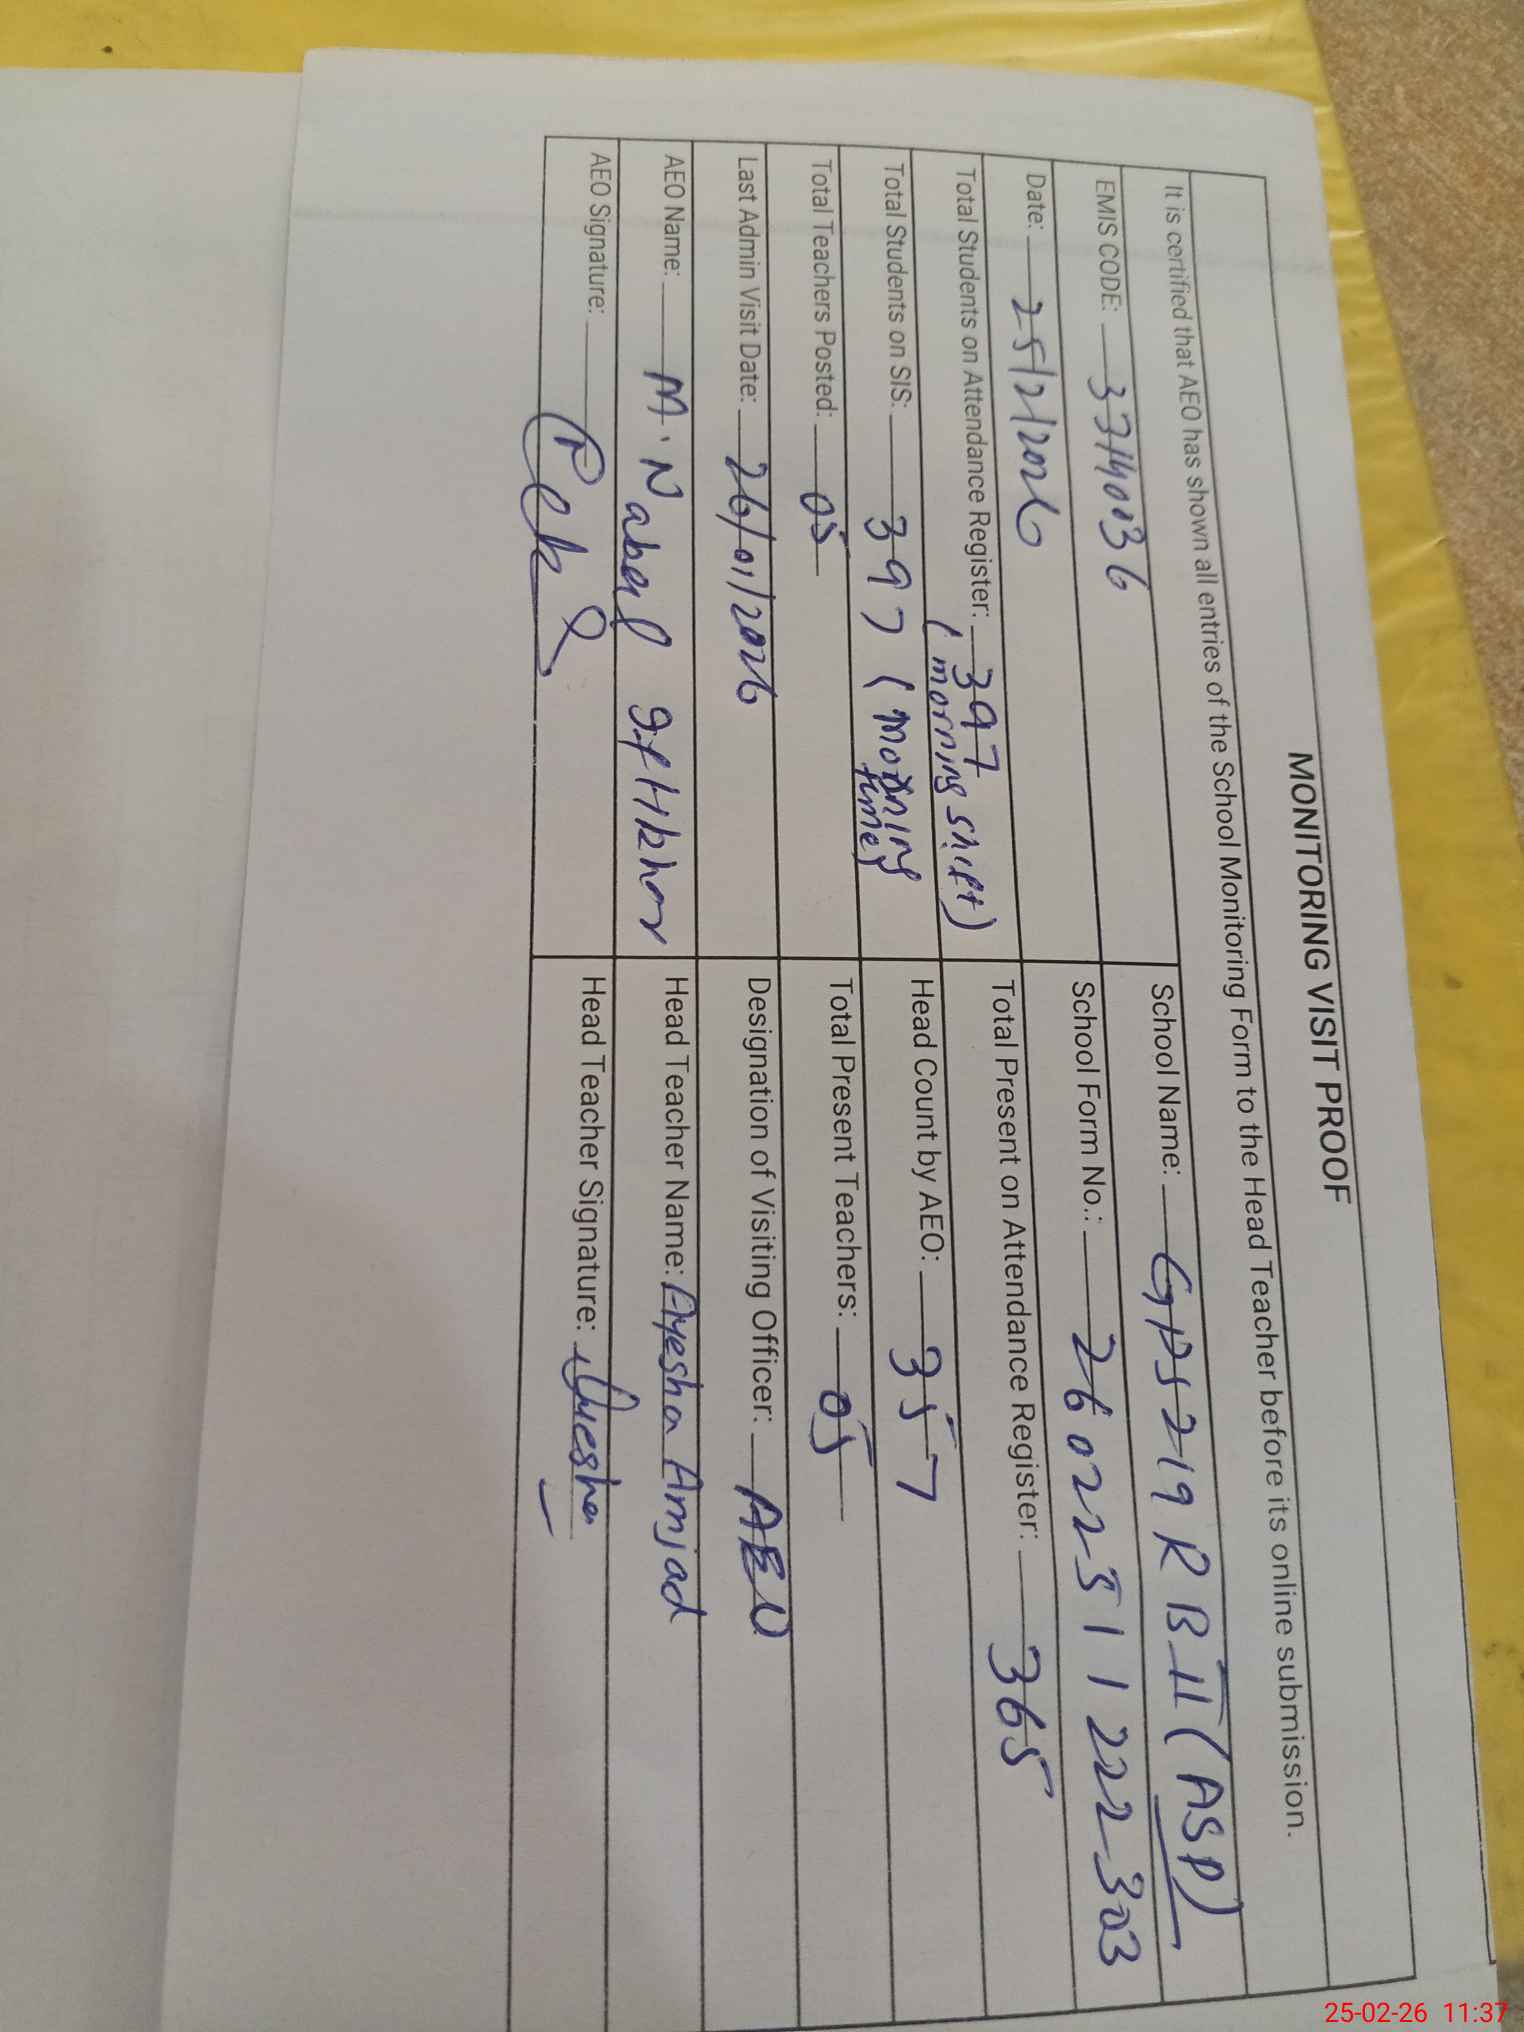 MONITORING VISIT PROOF
It is certified that AEO has shown all entries of the School Monitoring Form to the Head Teacher before its online submission.
EMIS CODE: 33140036
School Name: GPS 219 RB II (ASP)
Date: 25/2/2026
School Form No.: 26022511222303
Total Students on Attendance Register: 397
(morning shift)
Total Present on Attendance Register: 365
Total Students on SIS: 397 (Morning
time)
Head Count by AEO: 357
Total Teachers Posted: 05
Total Present Teachers: 05
Last Admin Visit Date: 26/01/2026
Designation of Visiting Officer: AEO
AEO Name: M. Nabeel Iftikhar
Head Teacher Name: Ayesha Amjad
AEO Signature:
Head Teacher Signature: Ayesha
25-02-26 11:37